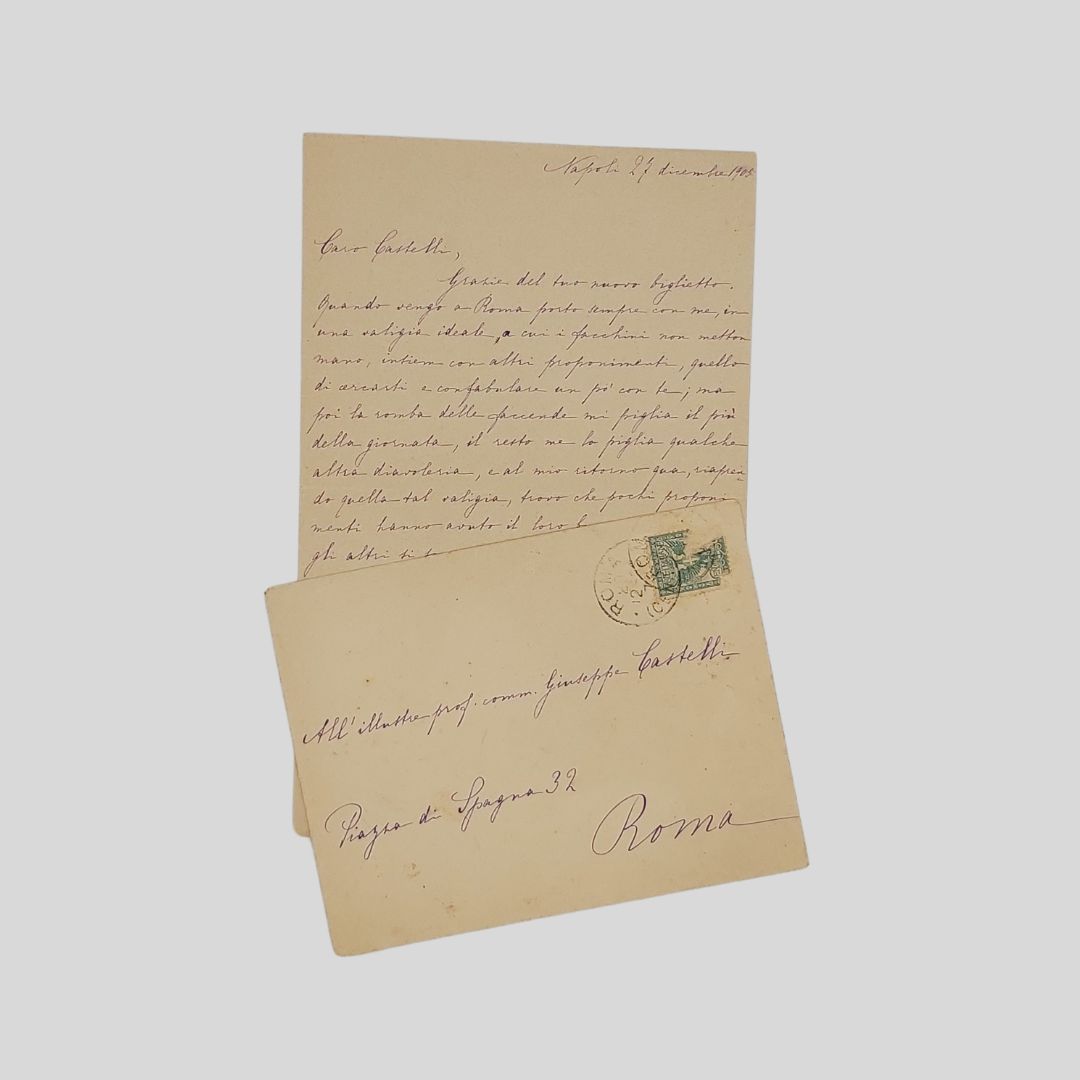 Napoli 27 dicembre 1905
Caro Castelli,
Grazie del tuo nuovo biglietto.
Quando vengo a Roma porto sempre con me, in
una valigia ideale, a cui i facchini non metton
mano, insiem con altri proponimenti, quello
di cercarti e confabulare un pò con te; ma
poi la romba delle faccende mi piglia il più
della giornata, il resto me lo piglia qualche
altra diavoleria, e al mio ritorno qua, riapren-
do quella tal valigia, trovo che pochi proponi
menti hanno avuto il loro
gli altri si
ROMA
12
All' illustre prof. comm. Giuseppe Castelli
Piazza di Spagna 32
Roma